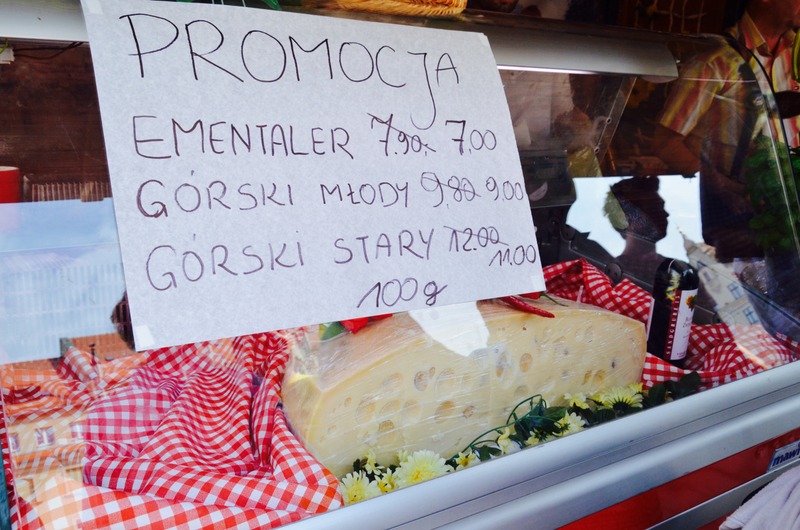 PROMOCJA
EMENTALER 7.90 7,00
GÓRSKI MŁODY 9,80 9,00
GÓRSKI STARY 12.00 11.00
100g